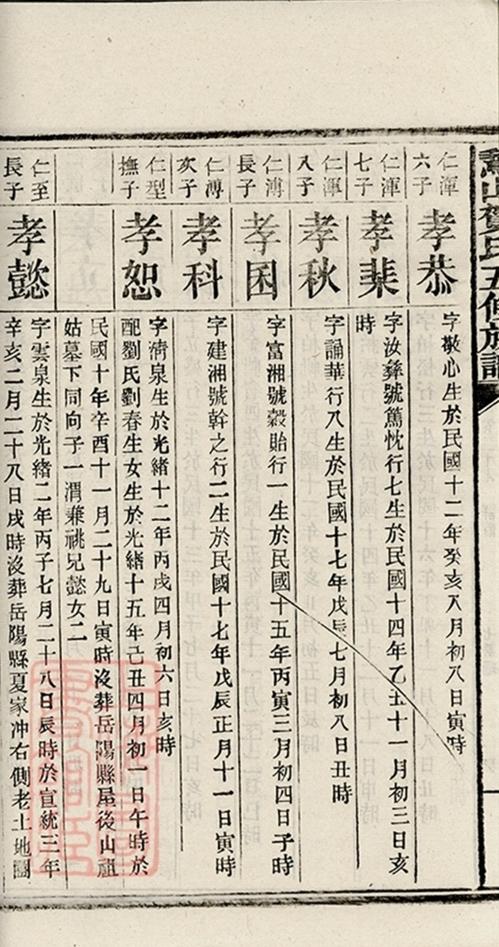 賀氏五修族譜
仁渾六子
孝恭
字敬心生於民國十二年癸亥八月初八日寅時
仁渾七子
孝棐
字汝彝號篤忱行七生於民國十四年乙丑十一月初三日亥
時
仁渾八子
孝秋
字誦華行八生於民國十七年戊辰七月初八日丑時
仁溥長子
孝囷
字富湘號穀貽行一生於民國十五年丙寅三月初四日子時
仁溥亥子
孝科
字建湘號幹之行二生於民國十七年戊辰正月十一日寅時
仁型撫子
孝恕
字濟泉生於光緒十二年丙戌四月初六日亥時
配劉氏劉春生女生於光緒十五年己丑四月初一日午時於
民國十年辛酉十一月二十九日寅時沒葬岳陽縣屋後山祖
姑墓下同向子一渭兼祧兄懿女二
仁至長子
孝懿
字雲泉生於光緒二年丙子七月二十八日辰時於宣統三年
辛亥二月二十八日戌時沒葬岳陽縣夏家冲右側老土地園